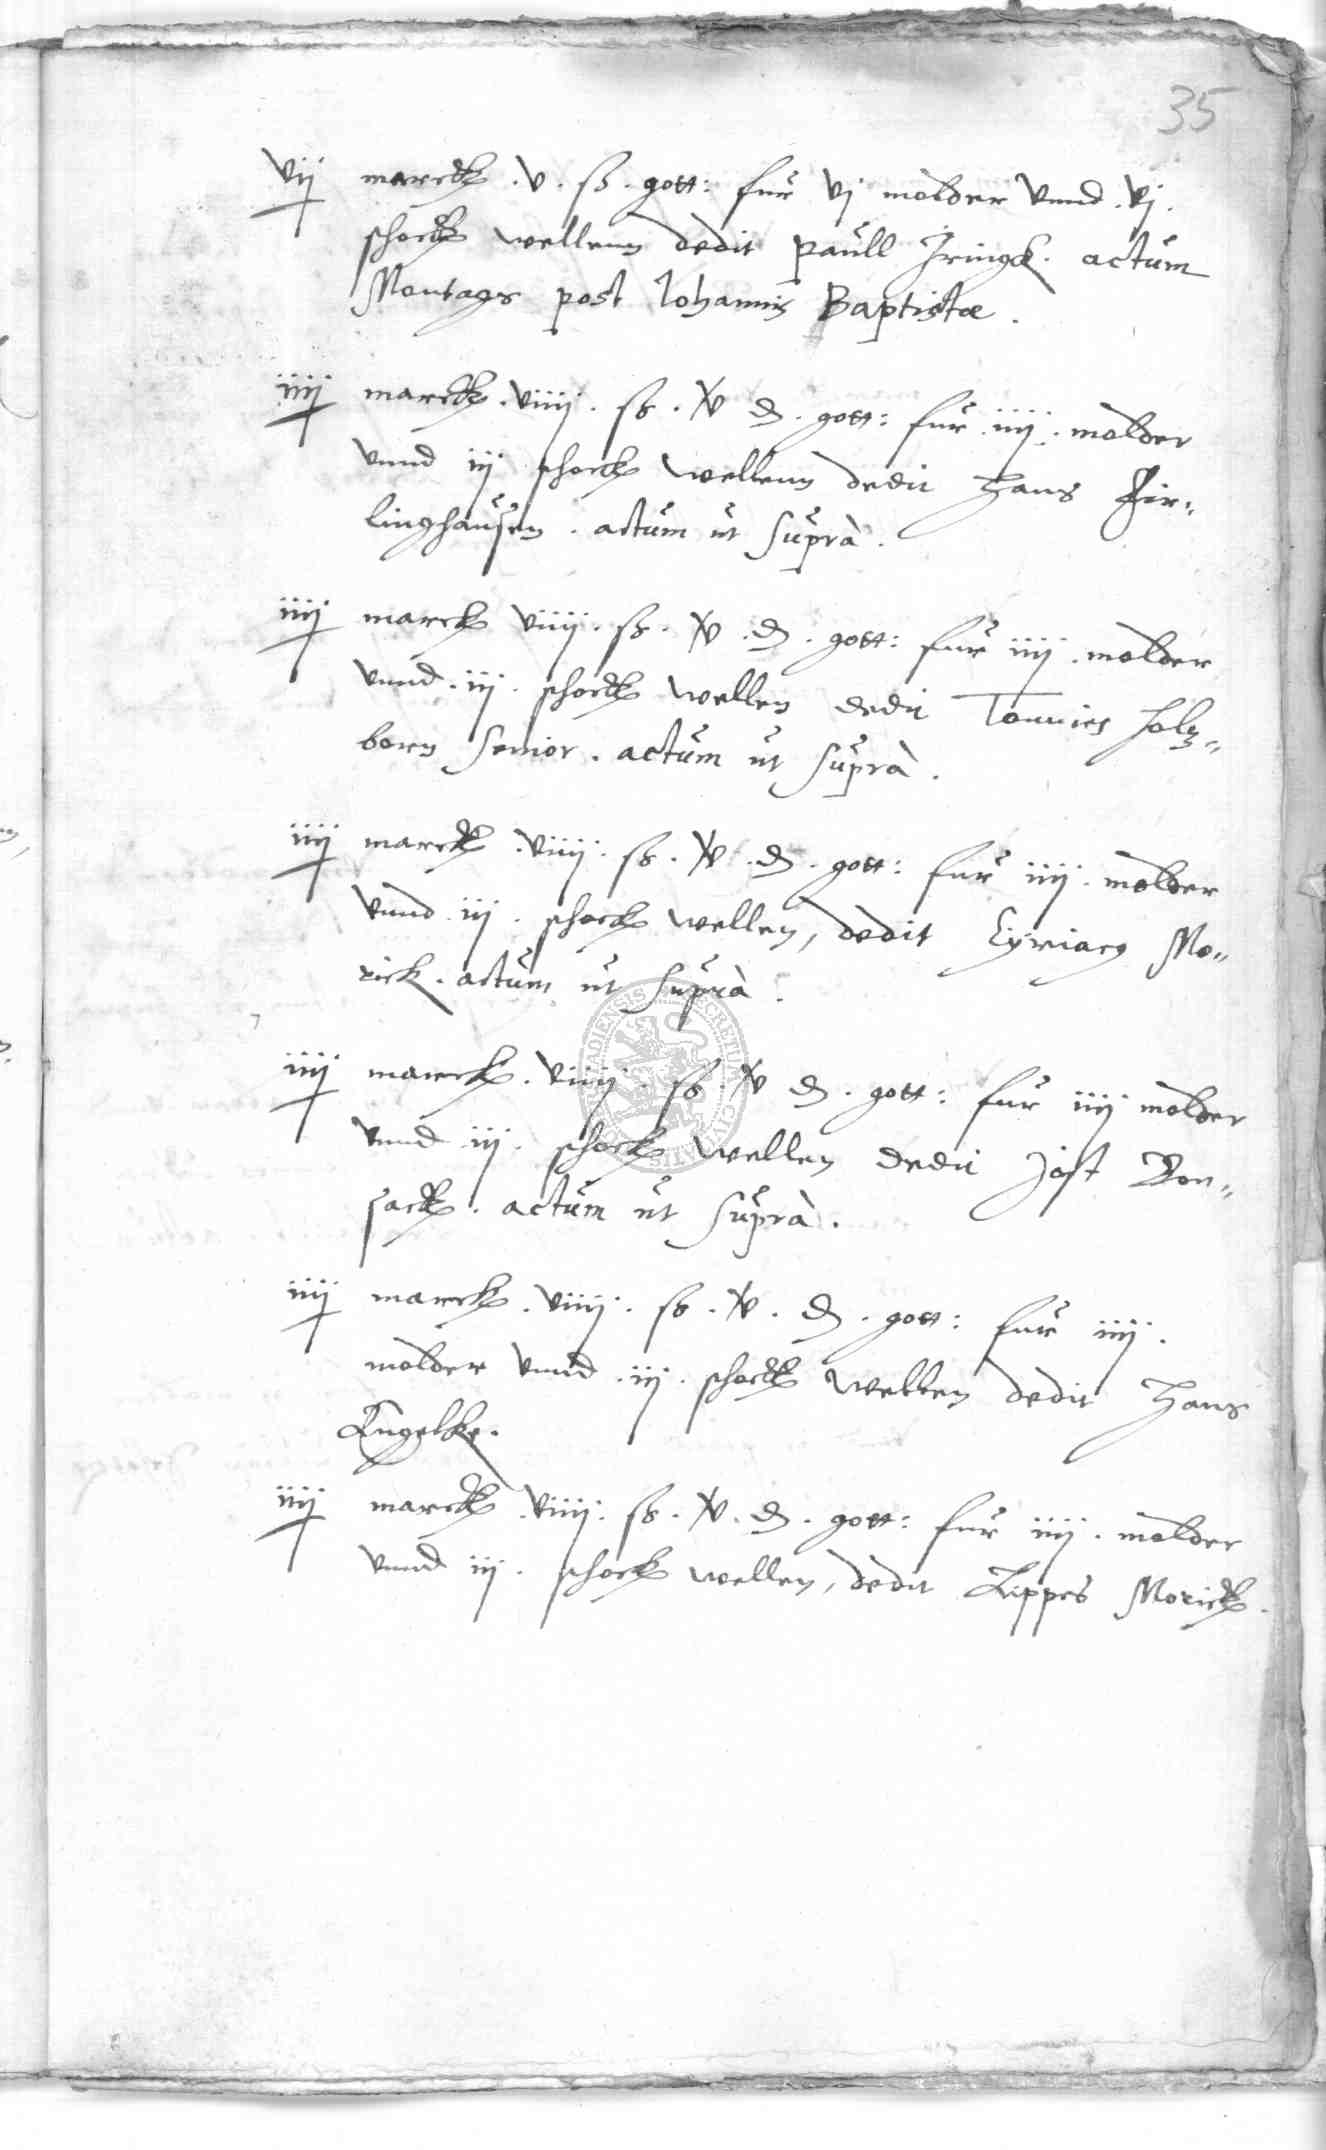 35
vij marck . v . ß . gott: fur vj molder vnnd . vj .
schock wellenn dedit Paull Iringk . actum
Montags post Iohannis Baptistæ .
iiij marck . viiij . ß . xv d . gott: fur . iiij . molder
vnnd iij schock wellenn dedit Hans Fir-
linghausen . actum ut suprà .
iiij marck viiij . ß . xv . d . gott: fur iiij . molder
vnnd . iij . schock wellen dedit Tonnies Holtz-
born Senior . actum ut suprà .
iiij marck . viiij . ß . xv . d . gott: fur iiij . molder
vnnd . iij . schock wellen, dedit Cyriacus Mo-
rick . actum ut suprà .
iiij marck . viiij . ß . xv d . gott: fur iiij molder
vnnd iij . schock wellen dedit Jost Don-
sack . actum ut suprà .
iiij marck . viiij . ß . xv . d . gott: fur iiij .
molder vnnd . iij . schock wellen dedit Hans
Engelke .
iiij marck . viiij . ß . xv . d . gott: fur iiij . molder
vnnd iij . schock wellen, dedit Lippes Morick .
SECRETUM CIVITATIS